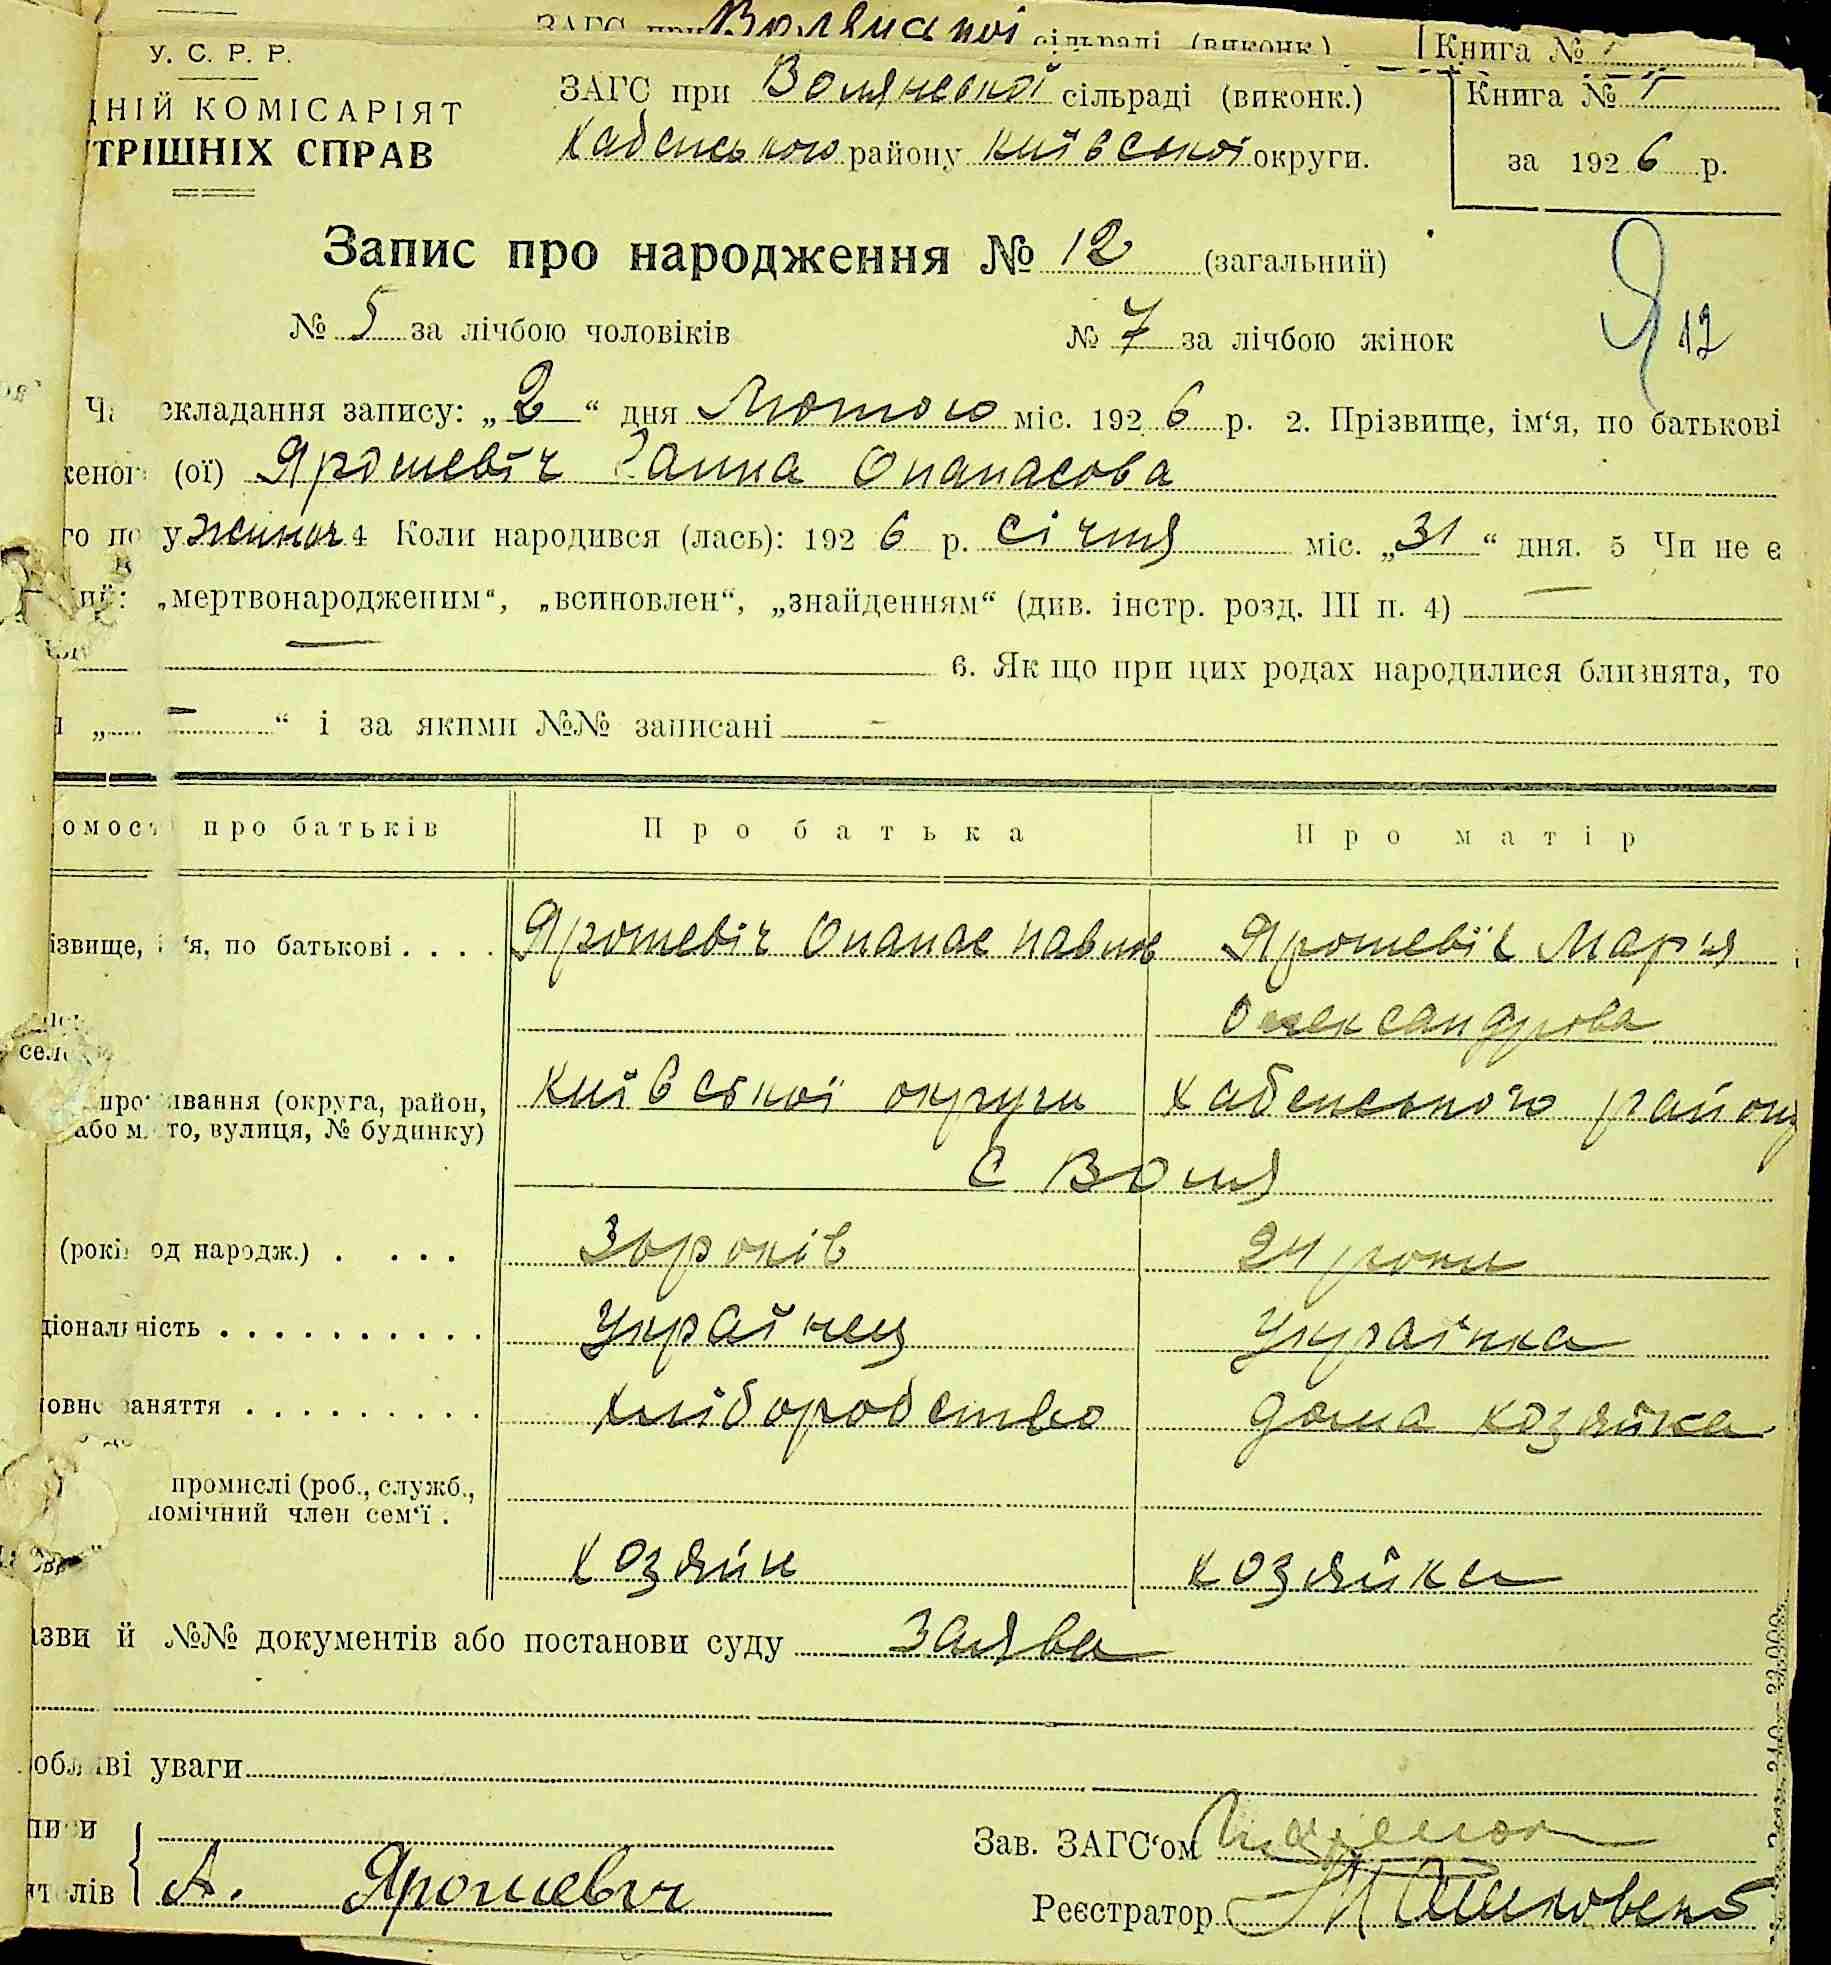 ЗАГС при Волянської сільраді (виконк.) Книга №
У. С. Р. Р.
ЗАГС при Волянської сільраді (виконк.) Книга № 1
ДНІЙ КОМІСАРІЯТ
Хабенського району Київської округи. за 1926 р.
ТРІШНІХ СПРАВ
Запис про народження № 12 (загальний)
№ 5 за лічбою чоловіків № 7 за лічбою жінок Я 12
складання запису: „2“ дня Лютого міс. 1926 р. 2. Прізвище, ім‘я, по батькові
женог (ої) Ярошевіч Ганна Опанасова
го по у жіноч 4 Коли народився (лась): 1926 р. січня міс. „31“ дня. 5 Чи не є
„мертвонародженим“, „всиновлен“, „знайденням“ (див. інстр. розд. III п. 4) —
— 6. Як що при цих родах народилися близнята, то
„ — “ і за якими №№ записані -
омост про батьків Про батька Про матір
ізвище, ‘я, по батькові . . . . Ярошевіч Опанас Павлов Ярошевіч Мар‘я
Олександрова
село
проживання (округа, район, Київської округи Хабенського району
або місто, вулиця, № будинку)
с Воля
(років од народж.) . . . . 30 років 24 роки
ціональність . . . . . . . . . . Українец Українка
овне заняття . . . . . . . . . хліборобство дома хозяйка
промислі (роб., служб.,
помічний член сем‘ї .
хозяйн хозяйка
азви й №№ документів або постанови суду Заява
обливі уваги
писи
Зав. ЗАГС‘ом
А. Ярошевич
Реєстратор